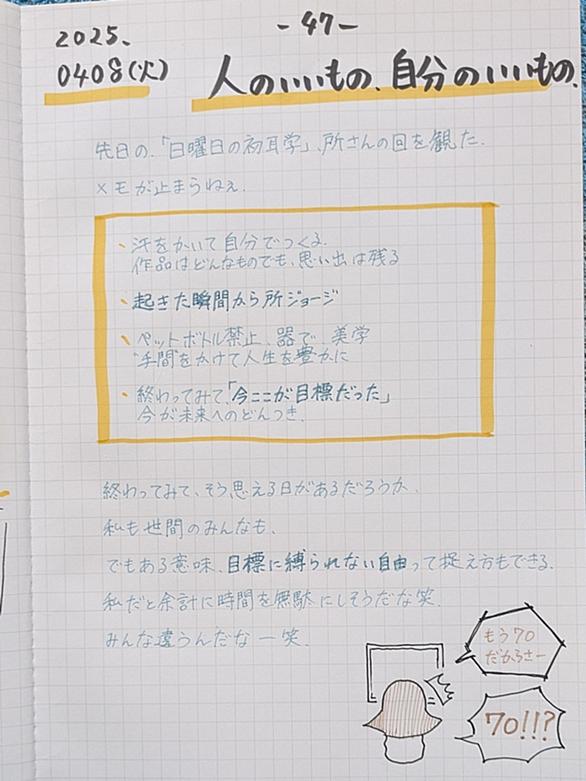 2025.
-47-
0408(火)
人のいいもの、自分のいいもの.
先日の、「日曜日の初耳学」、所さんの回を観た.
×モが止まらねぇ.
、汗をかいて自分でつくる.
作品はどんなものでも、思い出は残る
、起きた瞬間から所ジョージ
、ペットボトル禁止、器で、美学
"手間"をかけて人生を豊かに
、終わってみて、「今ここが目標だった」
今が未来へのどんつき.
終わってみて、そう思える日があるだろうか.
私も世間のみんなも、
でもある意味、目標に縛られない自由って捉え方もできる.
私だと余計に時間を無駄にしそうだな笑.
みんな違うんだな一笑.
もう70
だからさー
70!!?